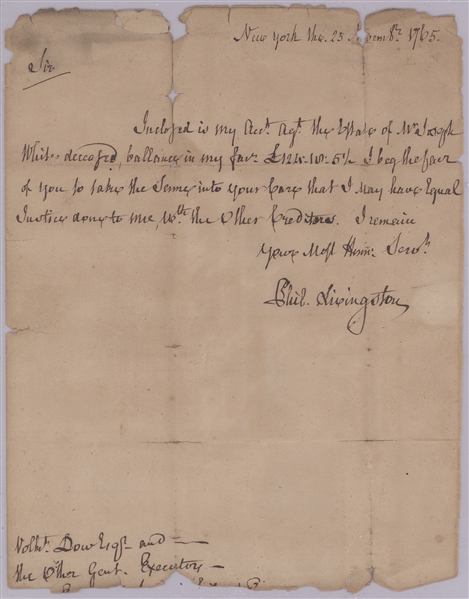 New York the 25 1765.
Sir
Inclosed is my Acct. agt. the Estate of Mr.
White deceased, ballance in my favr. £124.18.5½ I beg the favr
of you to take the Same into your Care that I may have Equal
Justice done to me, wth. the Other Creditors. I remain
Your Most Hum: Servt.
Phil. Livingston
Volkt. Dow Esqr. and
the Other Gent. Executors